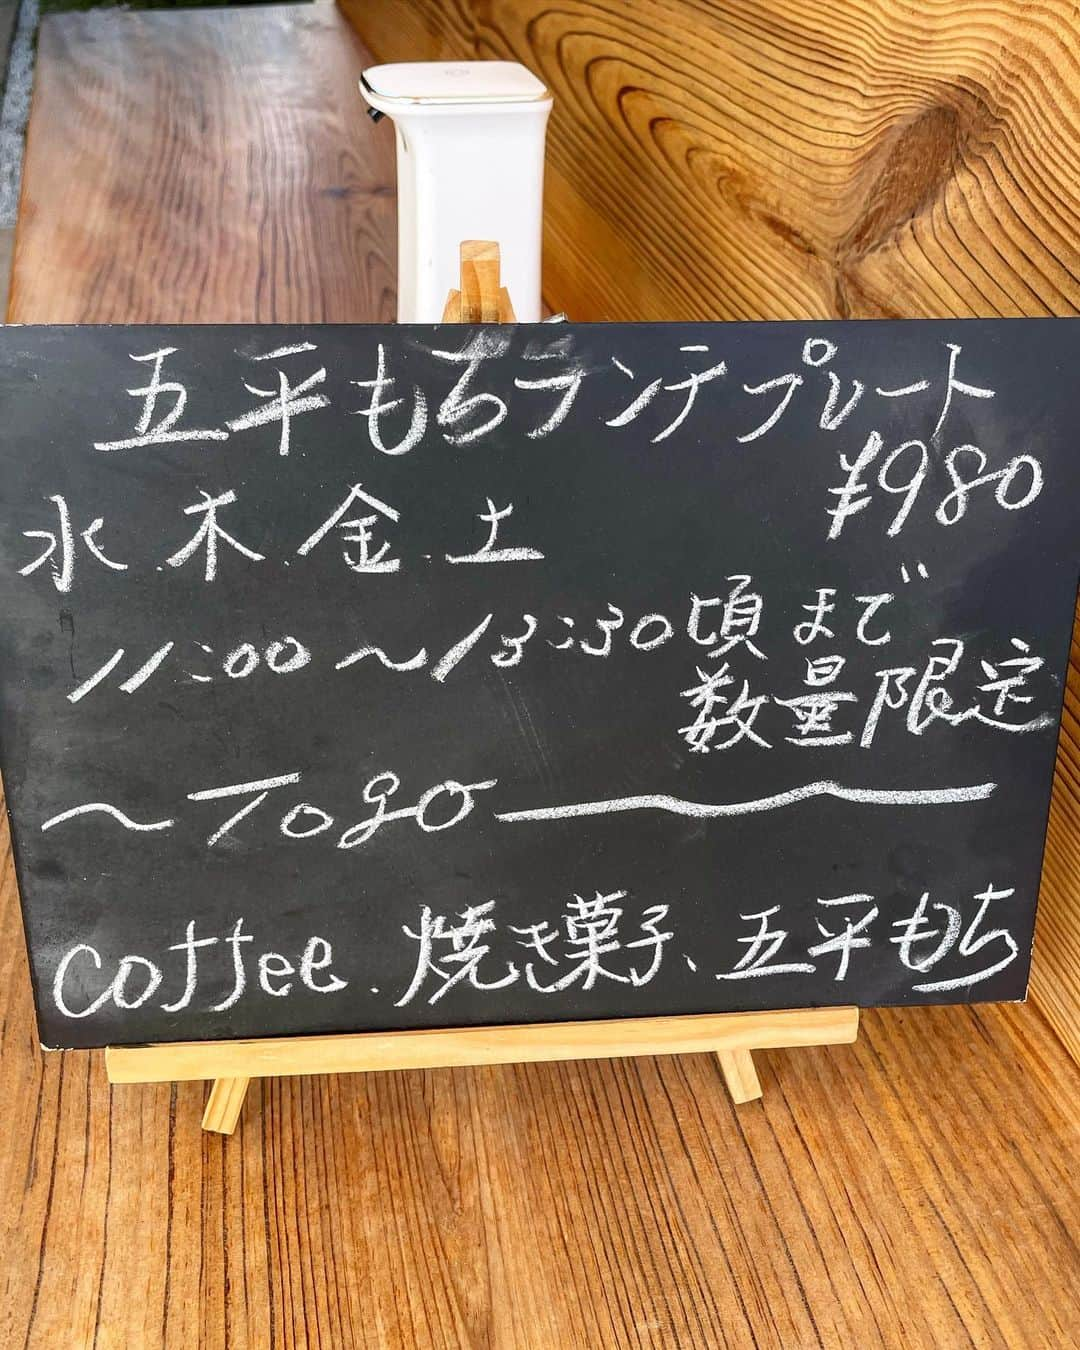 五平もちランチプレート
¥980
水.木.金.土
11:00〜13:30頃まで
数量限定
〜Togo〜
coffee.焼き菓子、五平もち